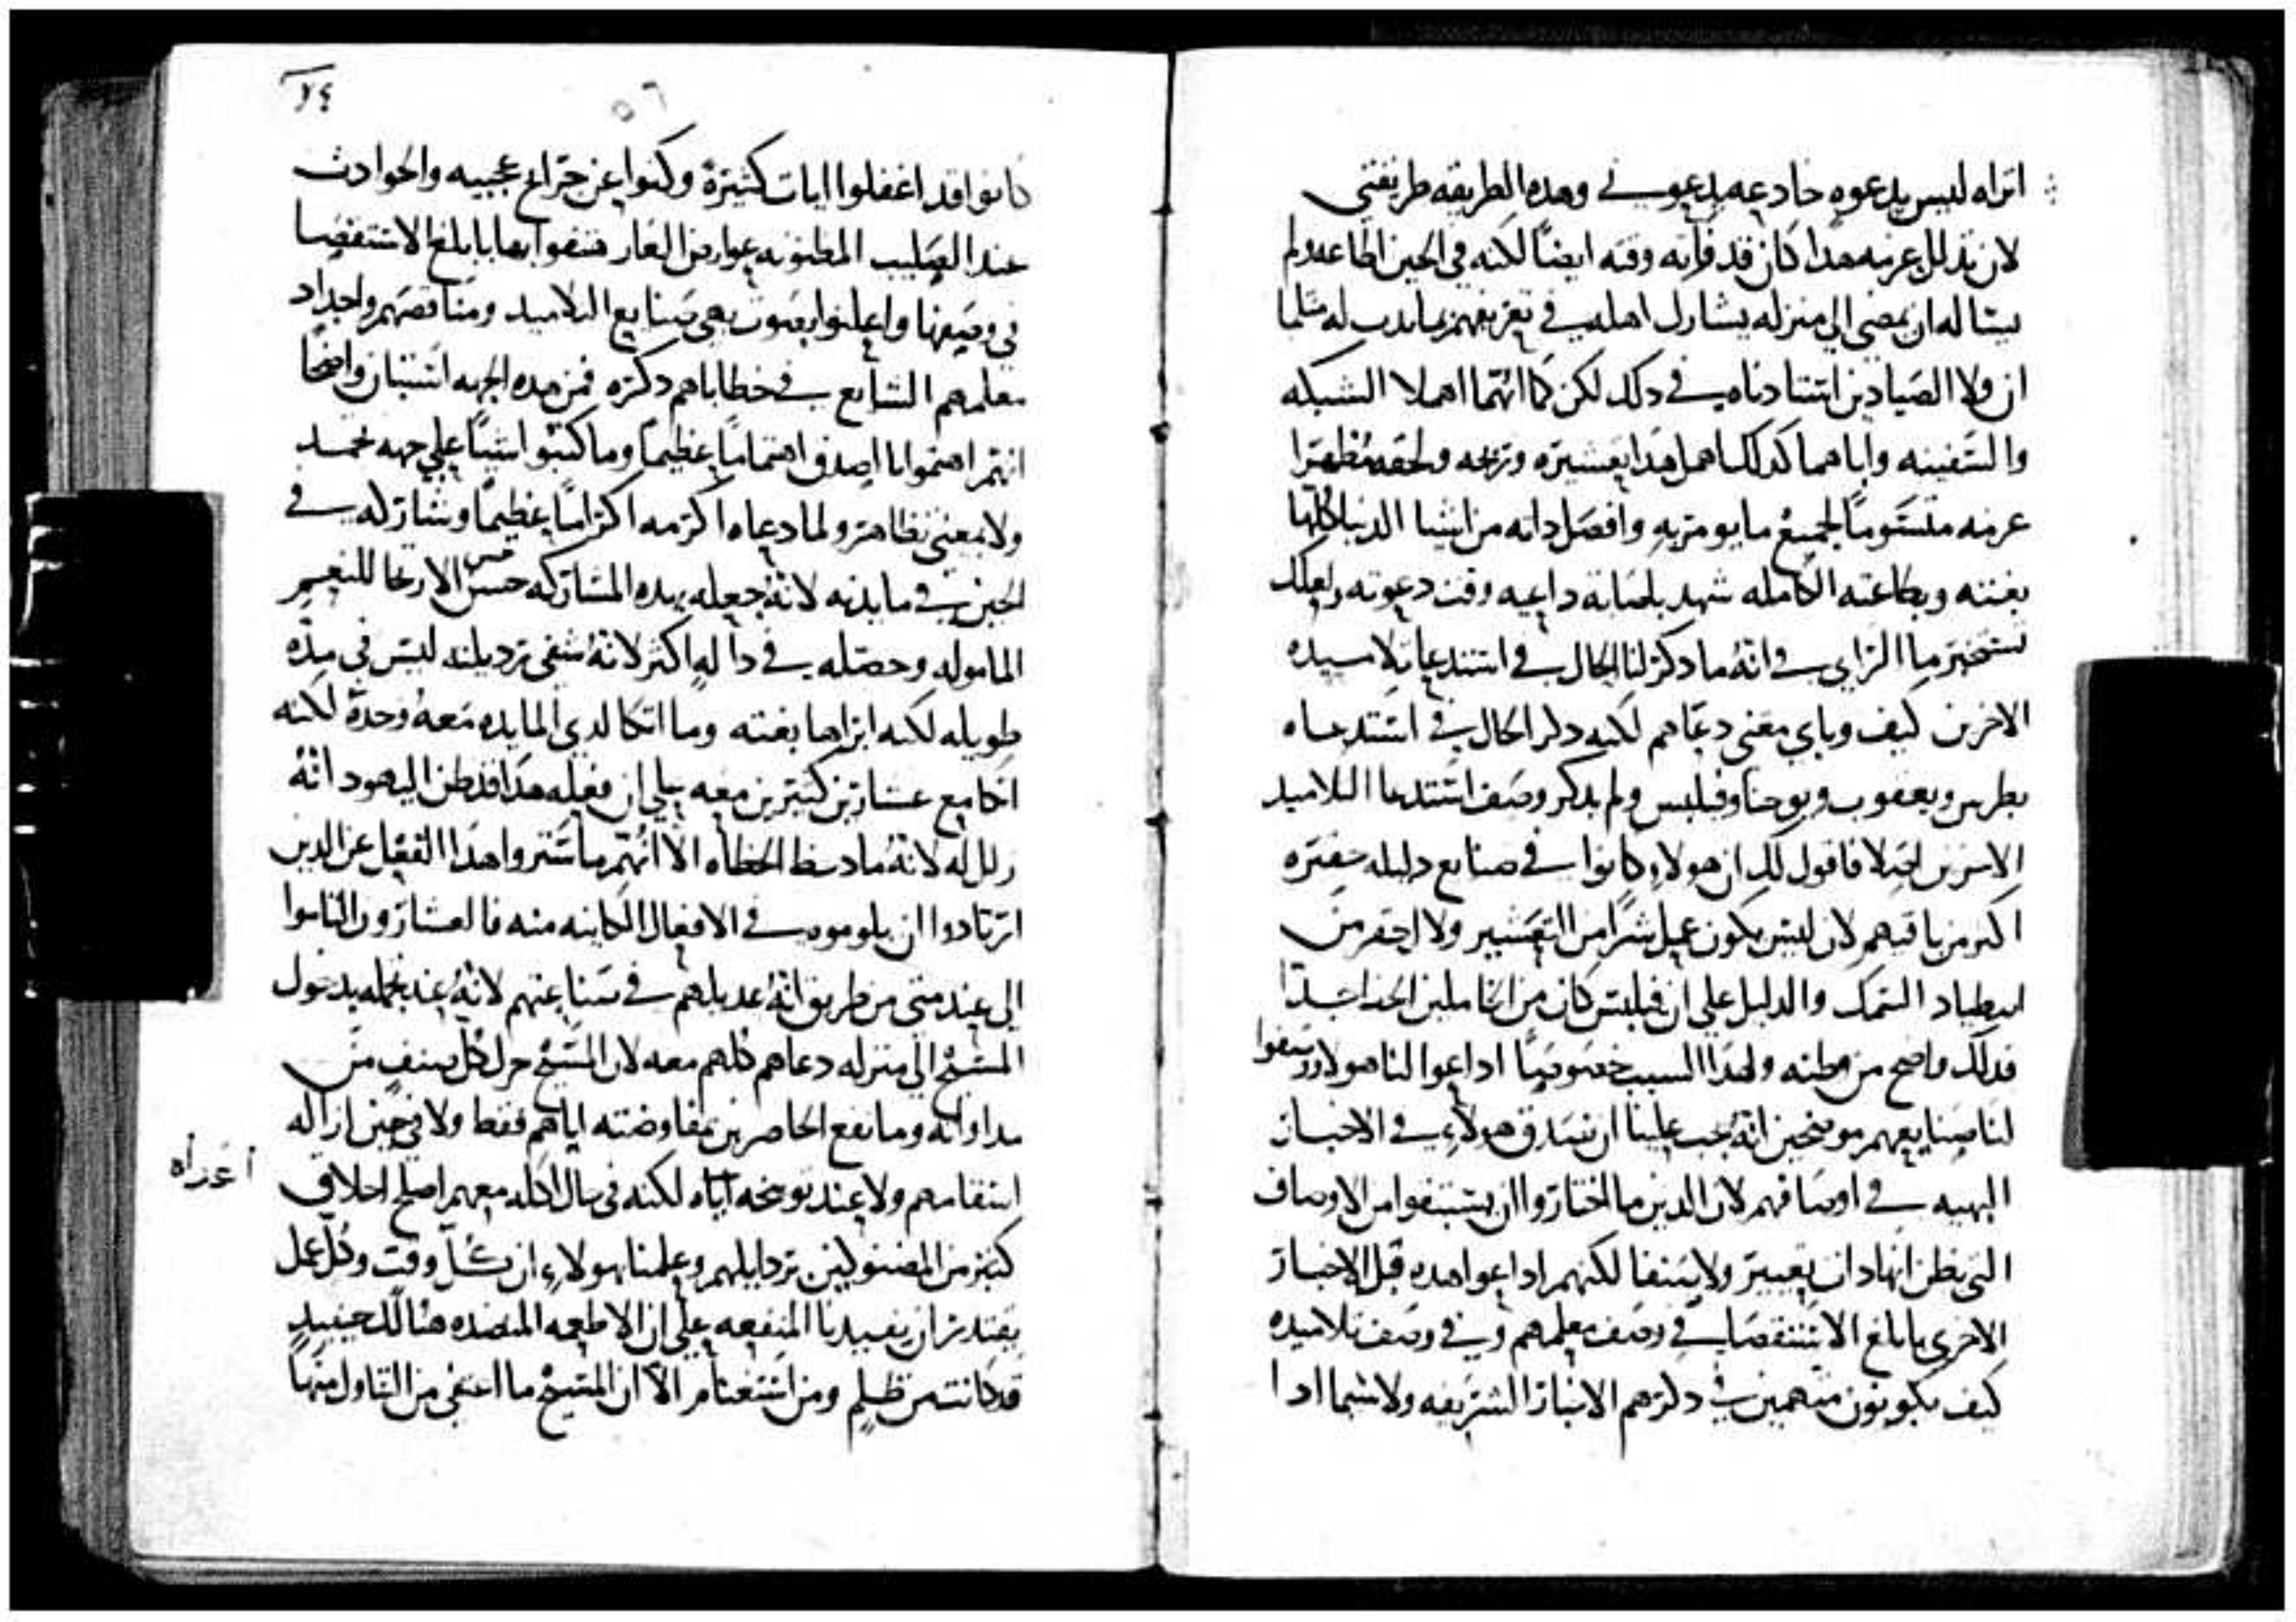 اتراه ليس يدعوه خادعه يدعوني وهذه الطريقه طريقتي
لان تذلل عزمه هذا كان قد فاته وقته ايضًا لكنه في الحين اطاعه ولم
يساله ان يمضي الي منزله يشارك اهله في تعريفهم ما يدب له مثلما
ان ولا الصيادين استادناه في ذلك لكن كما انهما اهملا الشبكه
والسفينه واباهما كذلك اهمل هذا تعشيره وربحه ولحقه مظهرًا
عزمه متسومًا لجميع ما يومر به وافصل ذاته من اشيا الدنيا كلها
بغتته وبطاعته الكامله شهد باصابة داعيه وقت دعوته ولعلك
تستخبر ما الراي في انه ما ذكر لنا الحال في استدعا تلاميذه
الاخرين كيف وباي معني دعاهم لكنه ذكر الحال في استدعاه
بطرس ويعقوب ويوحنا وفيلبس ولم يذكر وصف استدعا التلاميذ
الاخرين اخلا فاقول لك ان هولاء كانوا في صنايع ذليله حقيره
اكثر من باقيهم لان ليس يكون عمل شرًا من التعشير ولا احقر من
اصطياد السمك والدليل علي ان فيلبس كان من الخاملين الحد جدًا
فذلك واضح من وطنه ولهذا السبب خصوصًا اذاعوا لنا هولا ووصفوا
لنا صنايعهم موضحين انه يجب علينا ان نصدق هولاء في الاخبار
البهيه في اوصافهم لان الذين ما اختاروا ان يستنفوا من الاوصاف
التي يظن انها ذات تعيير ولا صنفا لكنهم اذاعوا هذه قبل الاخبار
الاخري بابلغ الاستقصا في وصف معلمهم وفي وصف تلاميذه
كيف يكونون متهمين في ذكرهم الاخبار الشريفه ولا سيما اذا
٧٤
٥٦
كانوا قد اغفلوا ايات كثيرة وكنوا عن جرايح عجيبه والحوادث
عند الصليب المظنونه عوارض العار هتفوا بها بابلغ الاستقصا
في وصفها واعلنوا بصوت بهي صنايع التلاميذ ومناقصهم واجداد
معلمهم الشايع في خطاياهم ذكره فمن هذه الجهه استبان واضحًا
انهم اهتموا بالصدق اهتمامًا عظيمًا وما كتبوا شيًا علي جهة تحمد
ولا بمعني تظاهر ولما دعاه اكرمه اكرامًا عظيمًا وشاركه في
الحين في مايدته لانه جعله بهذه المشاركه حسن الارتجا للنعيم
الماموله وحصله في داله اكثر لانه شفي رذيلته ليس في مده
طويله لكنه ابراها بغتته وما اتكا لدي المايده معه وحده لكنه
اتكا مع عشارين كثيرين معه علي ان فعله هذا قد ظن اليهود انه
زلل له لانه ما دسط الخطاه الا انهم ما ستروا هذا الفعل عن الذين
ارتادوا ان يلوموه في الافعال الكاينه منه فالعشارون التاموا
الي عند متي من طريق انه عديلهم في صناعتهم لانه عند تجمله بدخول
المسيح الي منزله دعاهم كلهم معه لان المسيح حرك كل صنف من
مداواته وما نفع الحاضرين بمفاوضته اياهم فقط ولا في حين ازاله
اسقامهم ولا عند توبيخه اياه لكنه في حال اكله معهم اصلح اخلاق
أعداه
كثير من المضنوكين برذايلهم وعلمنا بهولاء ان كل وقت وكل عمل
يقتدر ان يفيدنا المنفعه علي ان الاطعمه المنضده هنالك حينيذٍ
قد كانت من ظلم ومن استغنام الا ان المسيح ما اعتفي من التناول منها